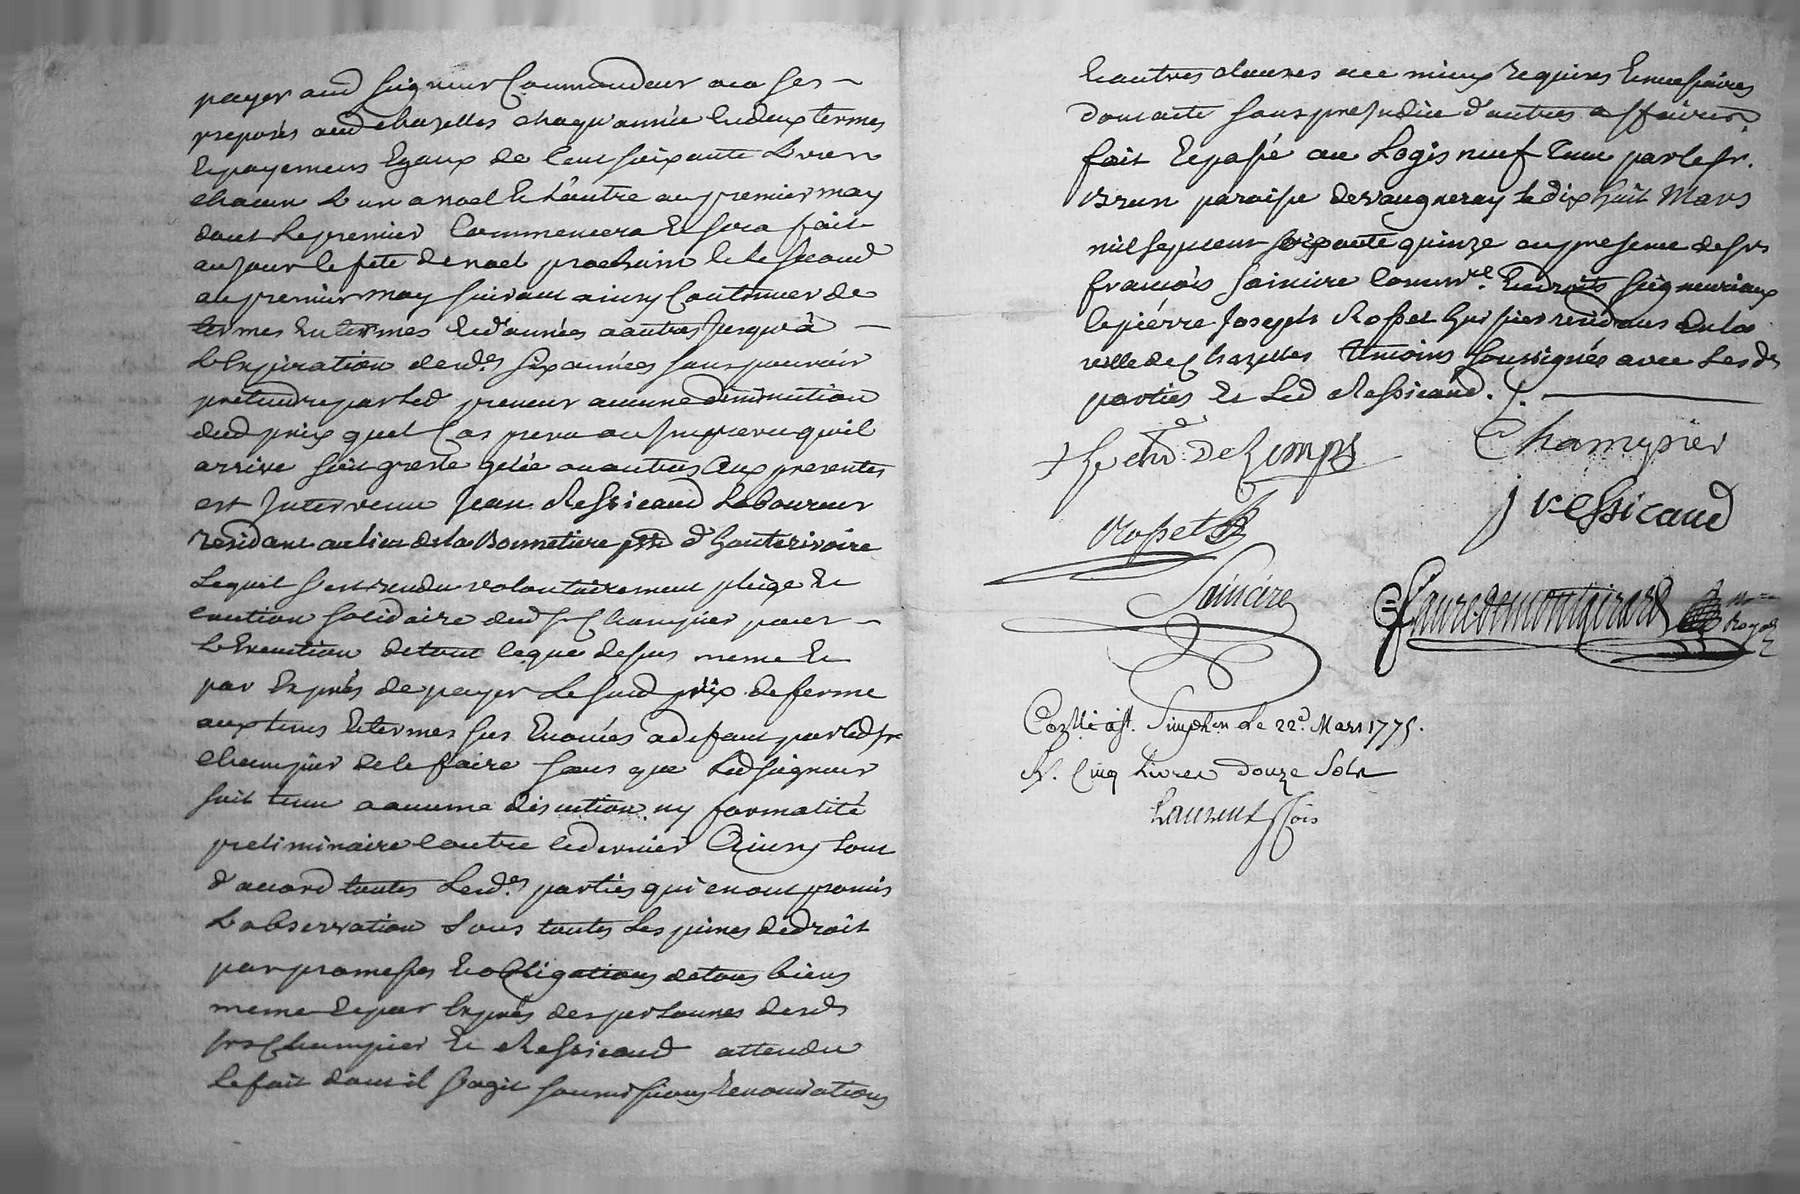 payer aud Seigneur Commandeur ou a ses
preposés aud chazelles chaqu'année en deux termes
et payemens Egaux de Cent soixante Livres
chacun L'un a noel et L'autre au premier may
dont Le premier Commencera et sera fait
au jour et fete de noel prochain et le second
au premier may suivant ainsy Continuer de
termes en termes et d'années a autres Jusqu'à
L'Expiration desd.es six années sans pouvoir
pretendre par Led preneur aucune diminution
dud prix quel Cas preveu ou Impreveu qu'il
arrive soit grele gelée ou autres Aux presentes
est Intervenu Jean Ressicaud Laboureur
residant au lieu de la Bonnetiere psse d'hauterivoire
Lequel s'est rendu volontairement pleige et
caution solidaire dud Sr Champier pour
L'Execution de tout ce que dessus meme et
par Exprès de payer Le susd prix de ferme
aux tems et termes sus Enoncés a defaut par led Sr
Champier de le faire sans que Led Seigneur
soit tenu a aucune discution ny formalité
preliminaire contre led dernier Ainsy sont
d'accord toutes Lesd.es parties qui en ont promis
L'observation sous toutes Les peines de droit
par promesses et obligations de tous biens
meme et par Exprès des personnes desds
Srs Champier et Ressicaud attendu
Le fait dont il s'agit soumissions renonciations
et autres clauses au mieux requises et necessaires
dont acte sans prejudice d'autres affaires.
fait et passé au Logis neuf tenu par le Sr.
Brun paroisse de vaugneray le dix huit Mars
mil sept cent soixante quinze en presence de Srs
françois Saincire Comm.re En droits seigneuriaux
et pierre Joseph Rosset huissier residans en la
ville de Chazelles temoins soussignés avec Lesds
parties et Led Ressicaud.
+ Le chr. de Lemps
Champier
Rosset
J ressicaud
Saincire
Faure de montgirard
No.re Royal
Con.lé à St. Simphon le 22.e Mars 1775.
R. Cinq Livres Douze Sols
Laurent